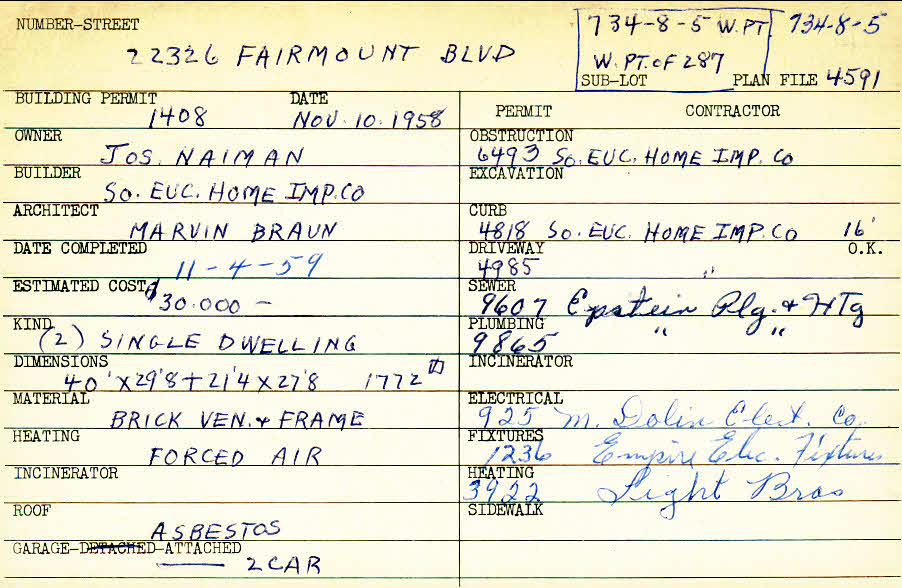 NUMBER-STREET
22326 FAIRMOUNT BLVD
734-8-5 W.PT. 734-8-5
W. PT. OF 287
SUB-LOT PLAN FILE 4591
BUILDING PERMIT DATE
1408 NOV. 10. 1958
OWNER
JOS. NAIMAN
BUILDER
SO. EUC. HOME IMP. CO
ARCHITECT
MARVIN BRAUN
DATE COMPLETED
11-4-59
ESTIMATED COST
$30.000 —
KIND
(2) SINGLE DWELLING
DIMENSIONS
40' X 29'8 + 21'4 X 27'8 1772
MATERIAL
BRICK VEN. & FRAME
HEATING
FORCED AIR
INCINERATOR
ROOF
ASBESTOS
GARAGE-DETACHED-ATTACHED
2 CAR
PERMIT CONTRACTOR
OBSTRUCTION
6493 SO. EUC. HOME IMP. CO
EXCAVATION
CURB
4818 SO. EUC. HOME IMP. CO 16'
DRIVEWAY O.K.
4985 "
SEWER
9607 Epstein Plg. & HTg
PLUMBING
9865 " "
INCINERATOR
ELECTRICAL
925 M. Dolin Elect. Co.
FIXTURES
1236 Empire Elec. Fixtures
HEATING
3922 Light Bros
SIDEWALK